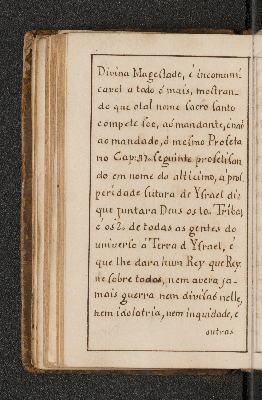 Divina Magestade, é incomuni
cavel a todo é mais, mostran-
do que otal nome sacro santo
compete soe, aó mandante, é naõ
ao mandado, ó mesmo Profeta
no Cap: 37. seguinte profetisan
do em nome do altissimo, a pros
peridade futura de Ysrael diz
que juntara Deus os 10. Tribos
é os 2. de todas as gentes do
universo á Terra d Ysrael, é
que lhe dara hum Rey que Rey-
ne sobre todos, nem avera ja-
mais guerra nem divisaé nelle,
nem idolotria, nem inquidade, é
outras